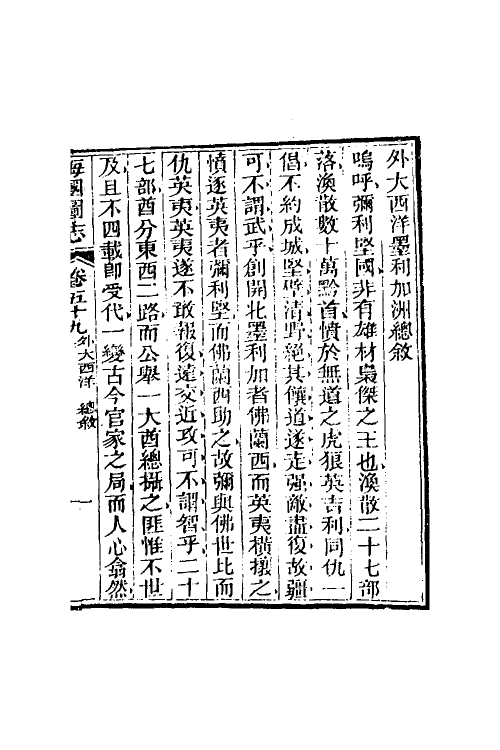 外大西洋墨利加洲總敘
嗚呼彌利堅國非有雄材梟傑之王也渙散二十七部
落渙散數十萬黔首憤於無道之虎狼英吉利同仇一
倡不約成城堅壁清野絕其饟道遂走强敵盡復故疆
可不謂武乎創開北墨利加者佛蘭西而英夷橫攘之
憤逐英夷者彌利堅而佛蘭西助之故彌與佛世比而
仇英夷英夷遂不敢報復遠交近攻可不謂智乎二十
七部酋分東西二路而公舉一大酋總攝之匪惟不世
及且不四載卽受代一變古今官家之局而人心翕然
海國圖志 卷五十九 外大西洋 總敘 一